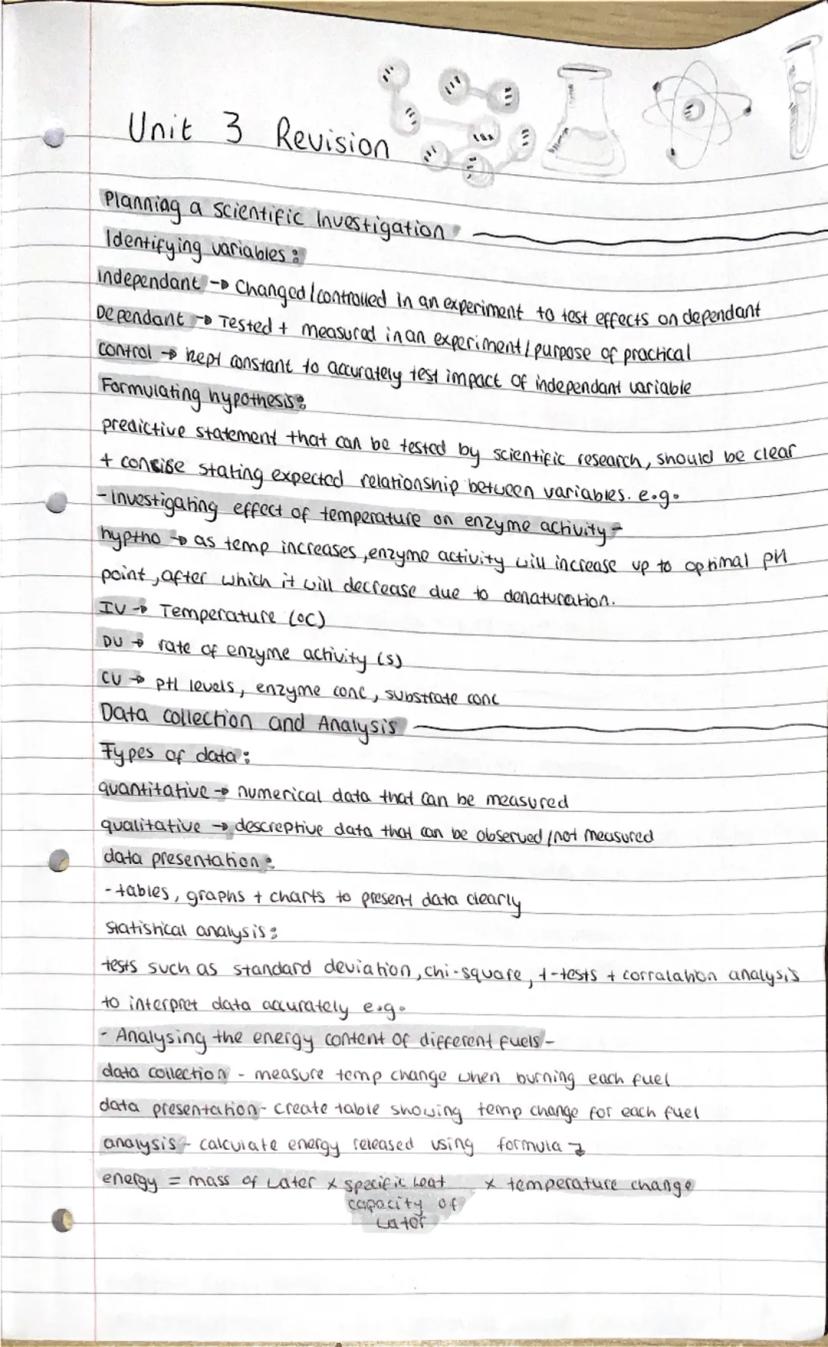 Unit 3 Revision
Planning a scientific investigation
Identifying variables:
independant → Changed/controlled in an experiment to test effects on dependant
Dependant → Tested + measured in an experiment/purpose of practical
control → kept constant to accurately test impact of independant variable
Formulating hypothesis:
predictive statement that can be tested by scientific research, should be clear
+ concise stating expected relationship between variables. e.g.
- Investigating effect of temperature on enzyme activity -
hyptho → as temp increases, enzyme activity will increase up to optimal pH
point, after which it will decrease due to denaturation.
IV → Temperature (oC)
DV → rate of enzyme activity (s)
CV → pH levels, enzyme conc, substrate conc
Data collection and Analysis
Types of data:
quantitative → numerical data that can be measured
qualitative → descreptive data that can be observed/not measured
data presentation:
- tables, graphs + charts to present data clearly
statistical analysis:
tests such as standard deviation, chi-square, t-tests + corralation analysis
to interpret data accurately e.g.
- Analysing the energy content of different fuels -
data collection - measure temp change when burning each fuel
data presentation - create table showing temp change for each fuel
analysis - calculate energy released using formula →
energy = mass of water x specific heat x temperature change
capacity of
water